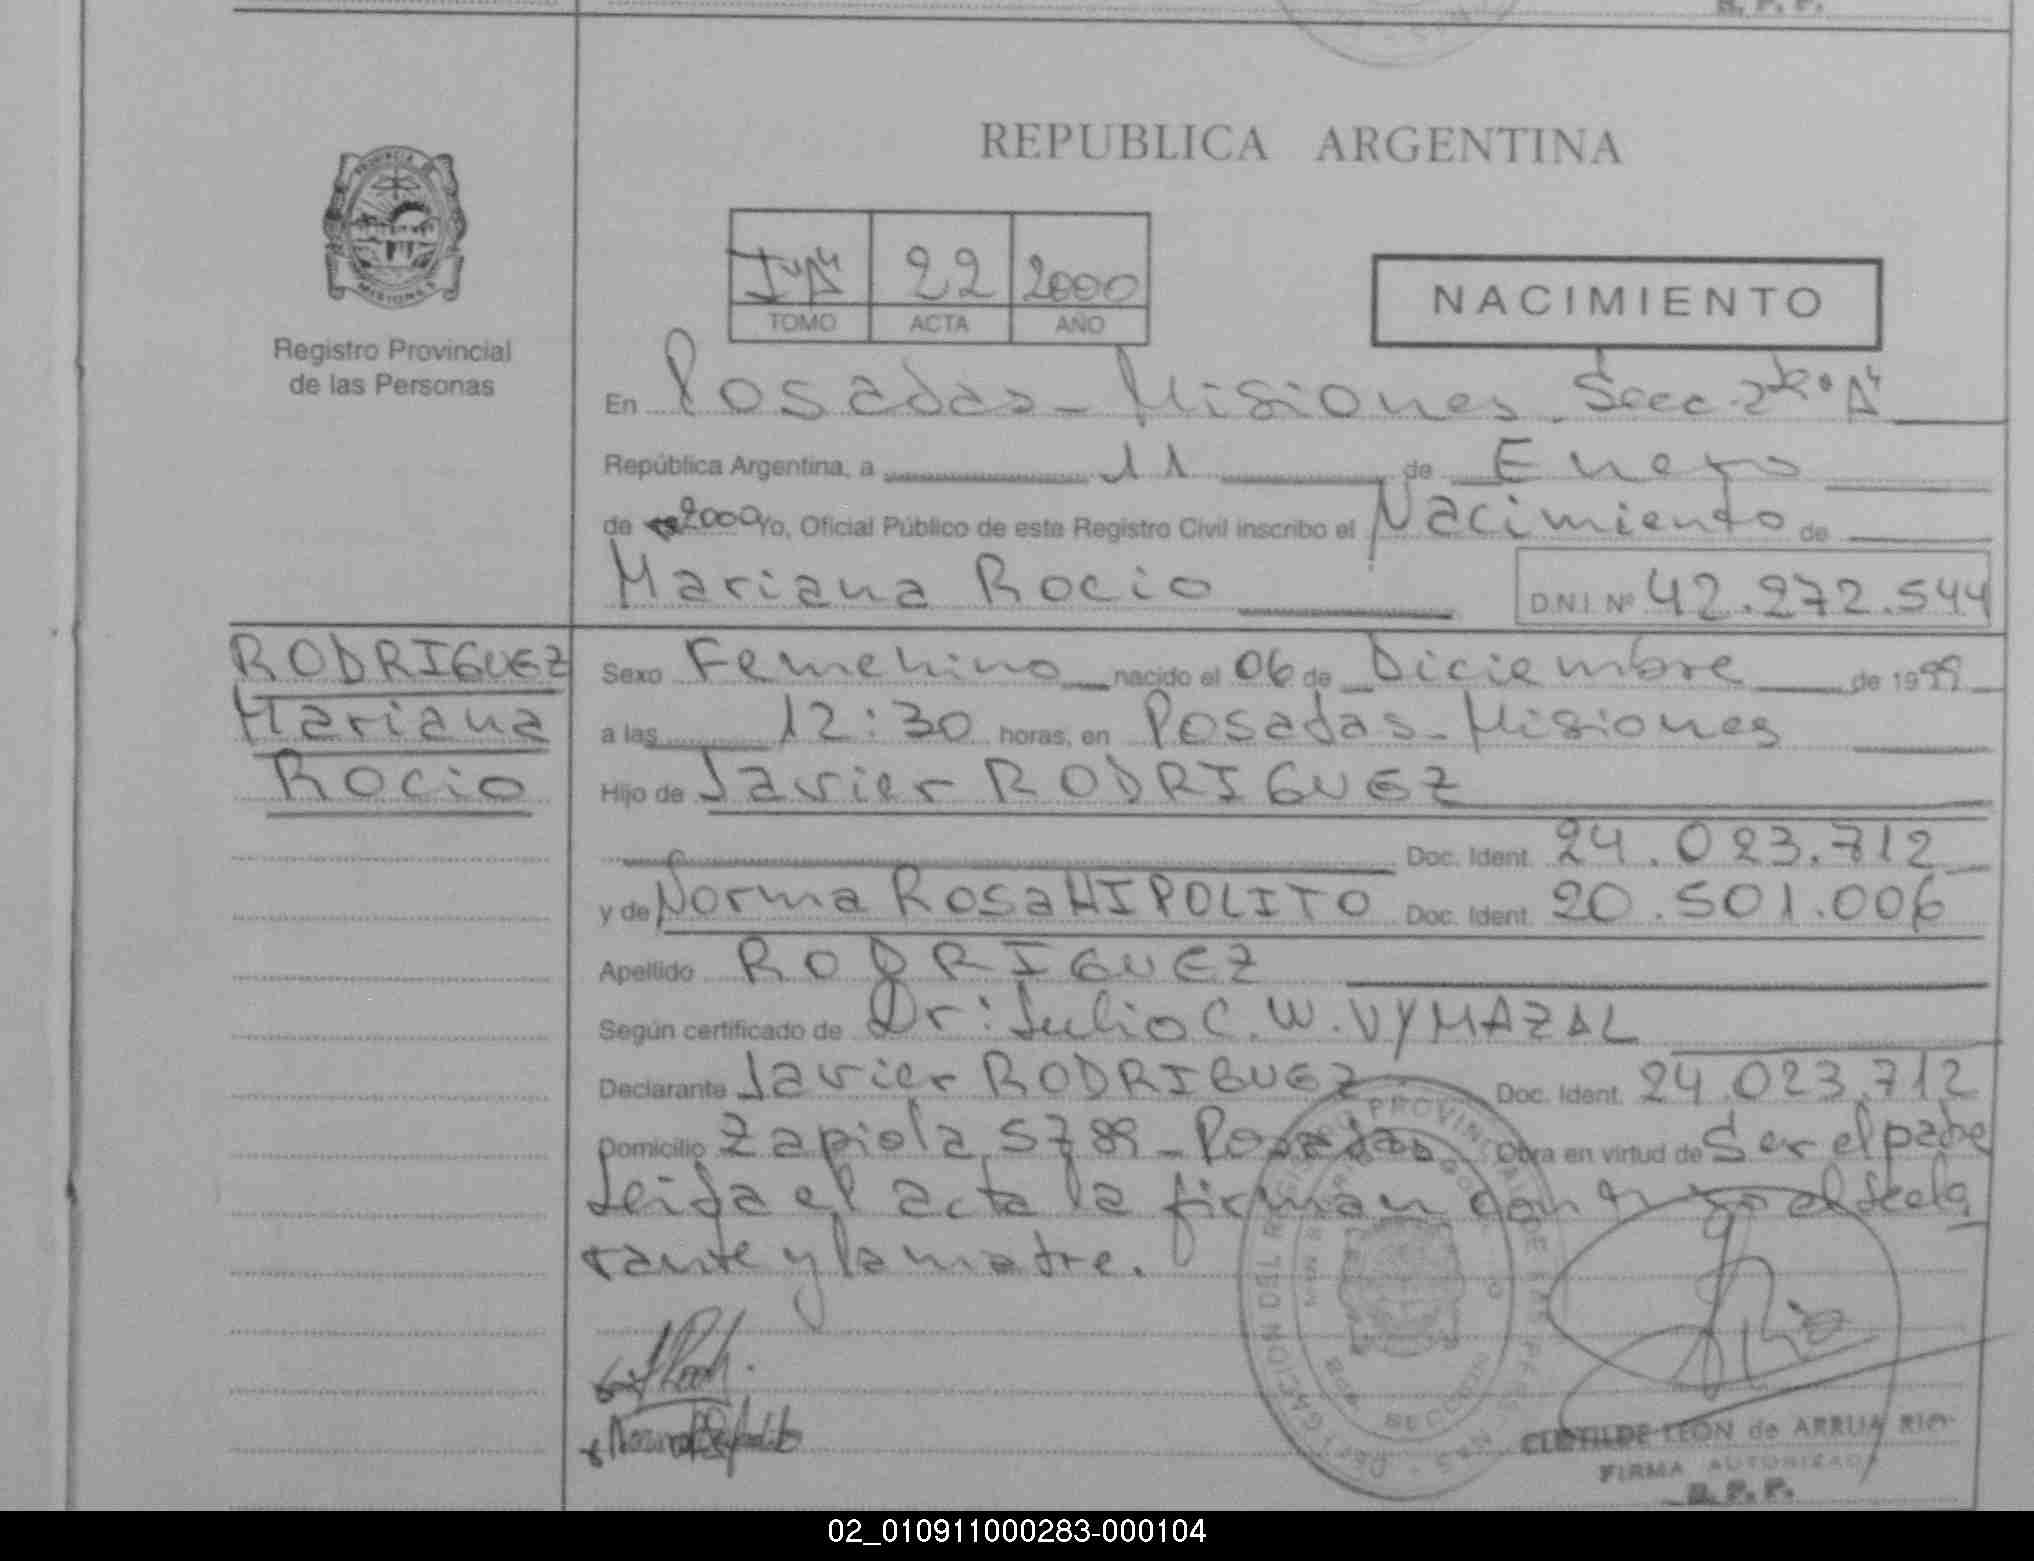 R. P. P.
REPUBLICA ARGENTINA
PROVINCIA DE
MISIONES
Registro Provincial
de las Personas
I"A" 22 2000
TOMO ACTA AÑO
NACIMIENTO
En Posadas - Misiones. Secc. 2da "A"
República Argentina, a 11 de Enero
de 2000 Yo, Oficial Público de este Registro Civil inscribo el Nacimiento de
Mariana Rocio D.N.I. Nº 42.272.544
RODRIGUEZ
Mariana
Rocio
Sexo Femenino nacido el 06 de Diciembre de 1999
a las 12:30 horas, en Posadas - Misiones
Hijo de Javier RODRIGUEZ
Doc. Ident. 24.023.712
y de Norma Rosa HIPOLITO Doc. Ident. 20.501.006
Apellido RODRIGUEZ
Según certificado de Dr: Julio C. W. VYMAZAL
Declarante Javier RODRIGUEZ Doc. Ident. 24.023.712
Domicilio Zapiola 5789 - Posadas Obra en virtud de Ser el padre
Leida el acta la firman conmigo el decla
rante y la madre.
CLOTILDE LEON de ARRUA
FIRMA AUTORIZADA
R. P. P.
02_010911000283-000104